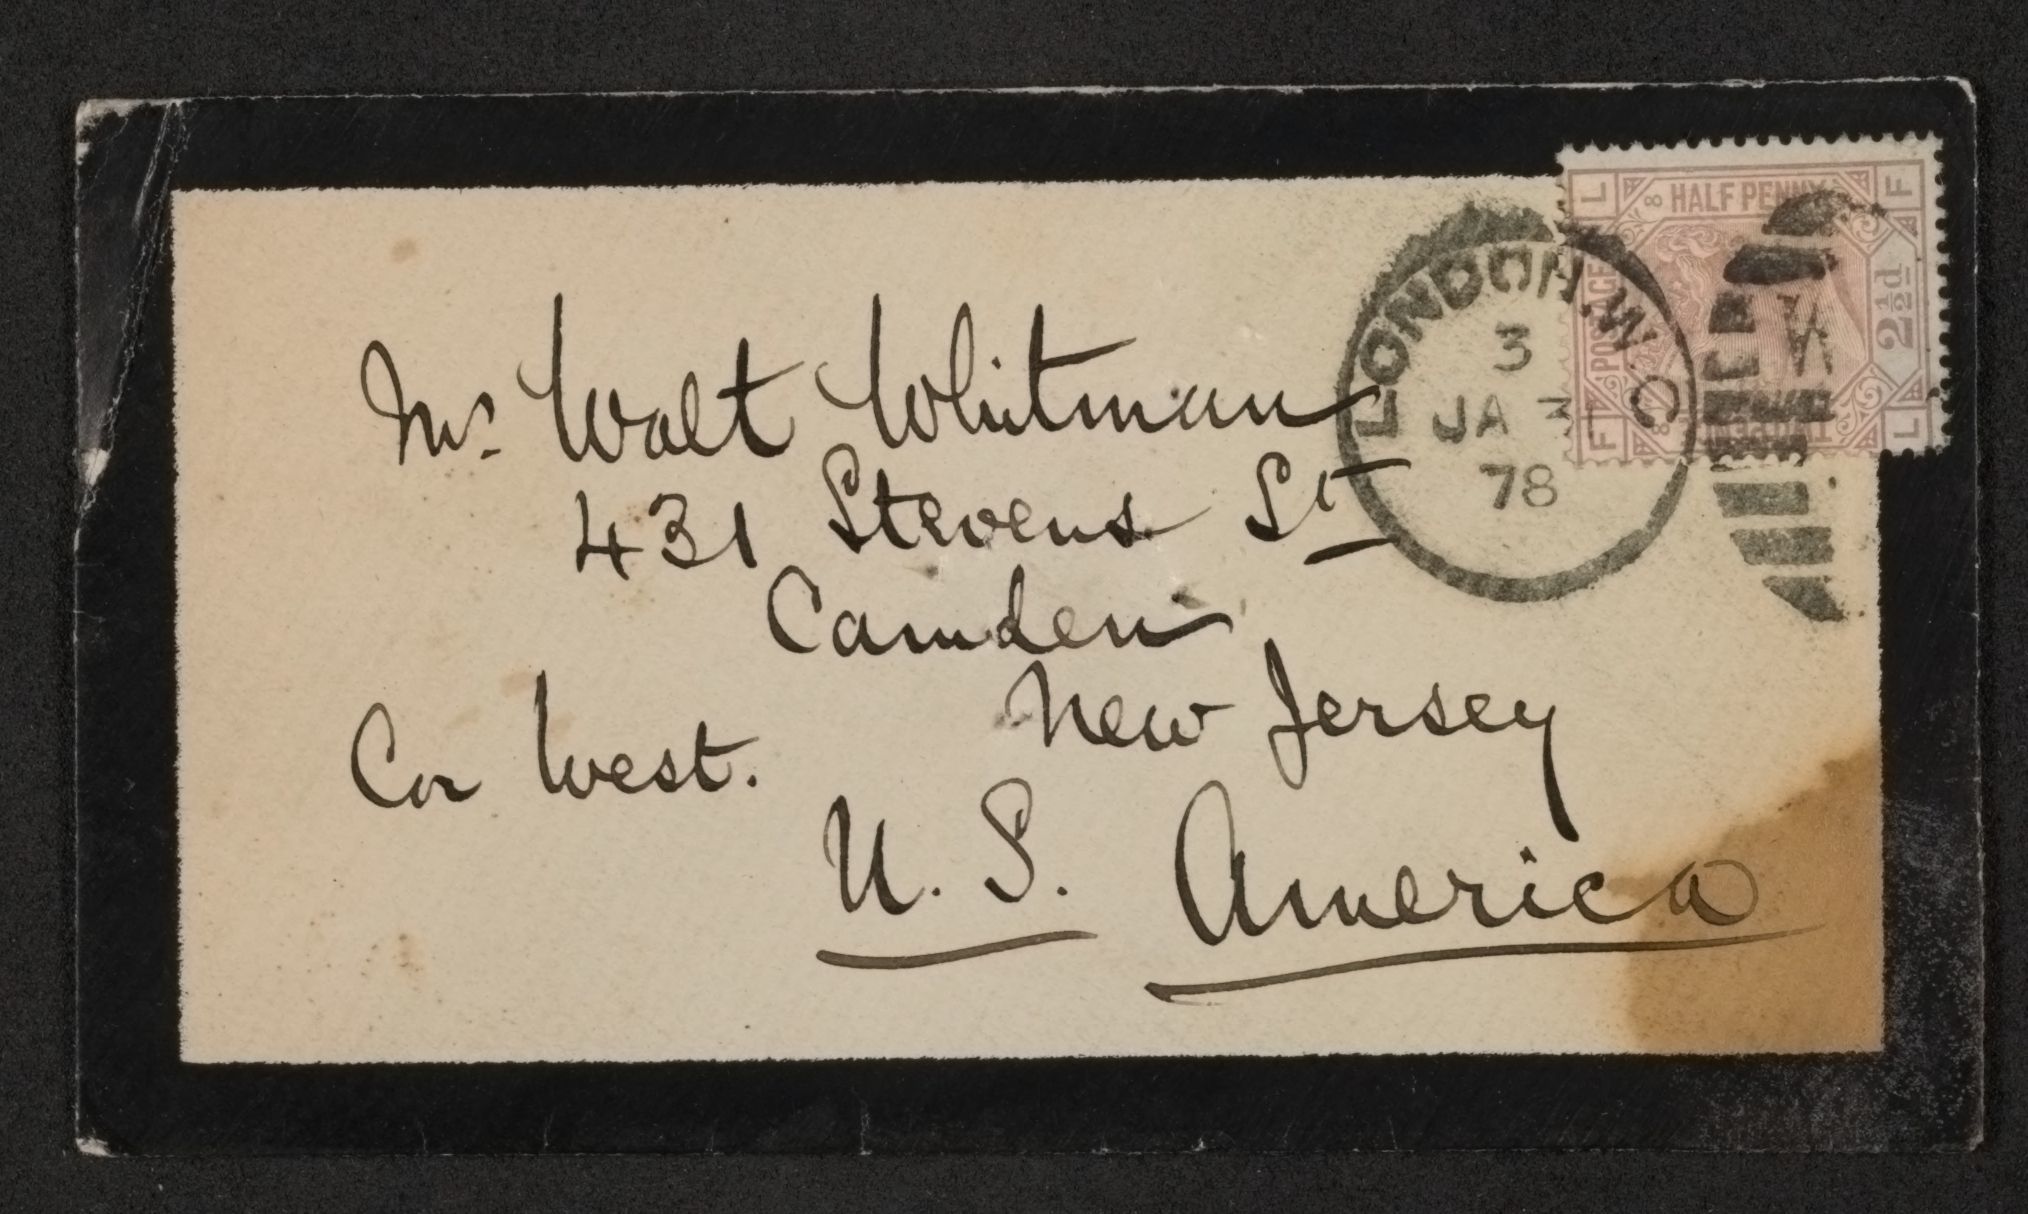 Mr. Walt Whitman
431 Stevens St
Camden
New Jersey
Cor West.
U. S. America
LONDON. W. C
3
JA 3
78
HALF PENNY
POSTAGE
2½d
L
F
F
L
8
8
W